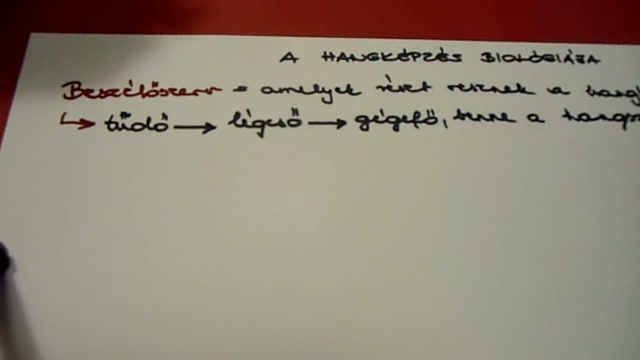 A HANGKÉPZÉS BIOLÓGIÁJA
Beszélőszerv = amelyek részt vesznek a hang
↳ tüdő → légcső → gégefő, benne a hangr